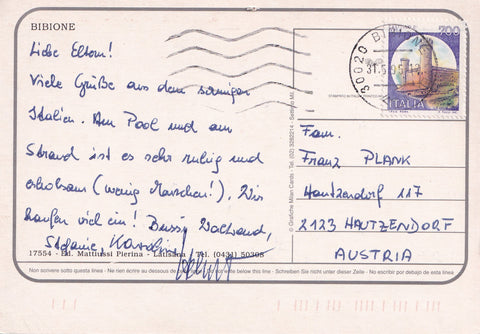 BIBIONE
Liebe Eltern!
Viele Grüße aus dem sonnigen
Italien. Am Pool und am
Strand ist es sehr ruhig und
erholsam (wenig Menschen!). Wir
kaufen viel ein! Bussi
Stefanie, Karoline
Helmut
17554 - Ed. Mattiussi Pierina - Latisana - Tel. (0431) 50305
Non scrivere sotto questa linea - Ne rien écrire au dessous de write below this line - Schreiben Sie nicht unter dieser Zeile - No escribir por debajo de esta linea
© Grafiche Milan Cards - Tel. (02) 3282214 - Settimo Mil.
30020 BIBIONE
700
ITALIA
Fam.
Franz PLANK
Hautzendorf 117
2123 HAUTZENDORF
AUSTRIA